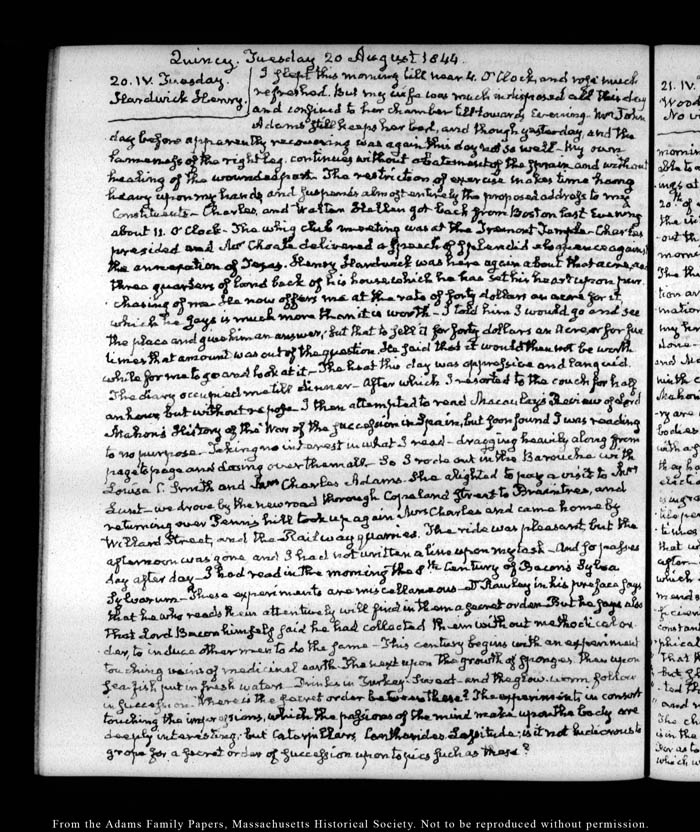 Quincy. Tuesday 20 August 1844.
20. IV. Tuesday.
Hardwick Henry.
I slept this morning till near 4. O'Clock, and rose much
refreshed. But my wife was much indisposed all this day
and confined to her chamber till towards Evening. Mrs John
Adams still keeps her bed, and though yesterday, and the
day before apparently recovering was again this day not so well. My own
lameness of the right leg, continues without abatement of the sprain and without
healing of the wounded part. The restriction of exercise makes time hang
heavy upon my hands and suspends almost entirely the proposed address to my
Constituents. Charles, and Walter Hellen got back from Boston last Evening
about 11. O'Clock. The whig club meeting was at the Tremont Temple. Charles
presided and Mr Choate delivered a speech of splendid eloquence against
the annexation of Texas. Henry Hardwick was here again about that acre, and
three quarters of land back of his house which he has set his heart upon pur-
chasing of me. He now offers me at the rate of forty dollars an acre for it
which he says is much more than it is worth. I told him I would go and see
the place and give him an answer; but that to sell it for forty dollars an Acre, or for five
times that amount was out of the question. He said that it would then not be worth
while for me to go and look at it. The heat this day was oppressive and languid.
The diary occupied me till dinner. After which I resorted to the couch for half
an hour, but without repose. I then attempted to read Macaulay's Review of Lord
Mahon's History of the War of the succession in Spain, but soon found I was reading
to no purpose. Taking no interest in what I read. dragging heavily along from
page to page and dozing over them all. So I rode out in the Barouche with
Louisa C. Smith and Mrs Charles Adams. She alighted to pay a visit to Mrs
Lunt. we drove by the new road through Copeland Street to Braintree, and
returning over Penn's hill took up again Mrs Charles and came home by
Willard Street, and the Railway quarries. The ride was pleasant, but the
afternoon was gone and I had not written a line upon my task. And so passes
day after day. I had read in the morning the 8th Century of Bacon's Sylva
Sylvarum. These experiments are miscellaneous. Dr Rawley in his preface says
that he who reads them attentively will find in them a secret order. But he says also
that Lord Bacon himself said he had collected them without methodical or-
der, to induce other men to do the same. This century begins with an experiment
touching veins of medicinal earth. The next upon the growth of sponges. Then upon
sea fish put in fresh waters. Drinks in Turkey. Sweat. and the glow-worm follow
in succession. Where is the secret order between these? The experiments in consort
touching the impressions, which the passions of the mind make upon the body are
deeply interesting; but Caterpillars, Cantharides, Lassitude; is it not ludicrous to
grope for a secret order of succession upon topics such as these?
21. IV.
From the Adams Family Papers, Massachusetts Historical Society. Not to be reproduced without permission.